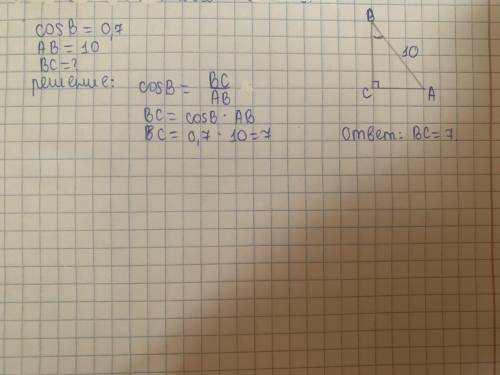 cosB = 0,7
AB = 10
BC = ?
решение:
cosB = BC / AB
BC = cosB · AB
BC = 0,7 · 10 = 7
B
10
C
A
Ответ: BC = 7